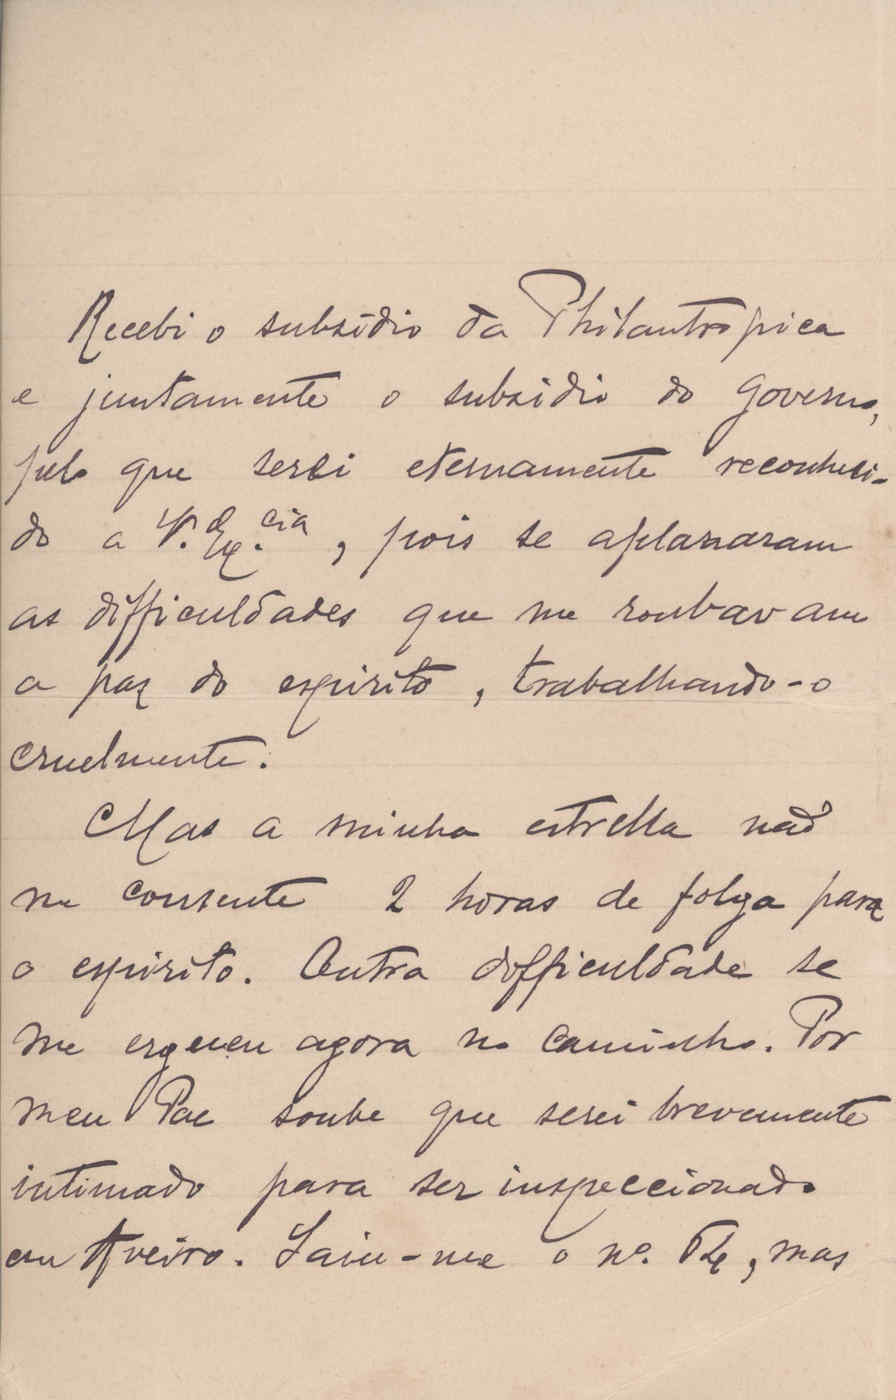 Recebi o subsidio da Philantropica
e juntamente o subsidio do Governo,
pelo que serei eternamente reconheci-
do a V. Ex.cia, pois se aplanaram
as difficuldades que me roubavam
a paz do espirito, trabalhando-o
cruelmente.
Mas a minha estrella não
me consente 2 horas de folga para
o espirito. Outra difficuldade se
me ergueu agora no caminho. Por
meu Pae soube que serei brevemente
intimado para ser inspeccionado
em Aveiro. Saiu-me o nº. , mas